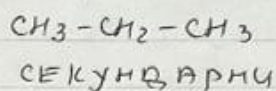 CH3-CH2-CH3
СЕКУНДАРНИ